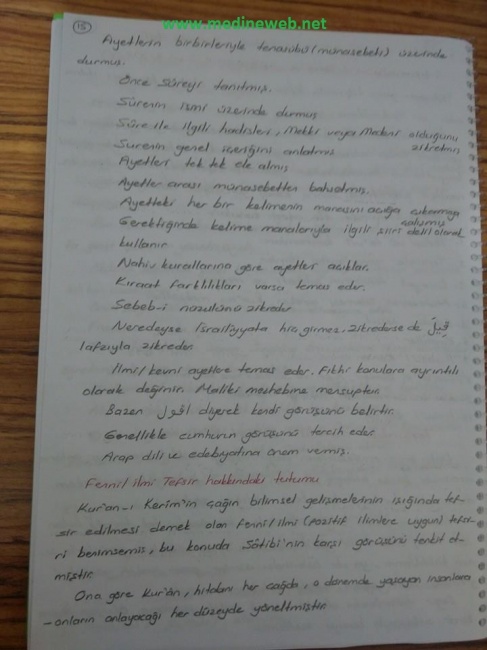 www.medineweb.net
15
Ayetlerin birbirleriyle tenasübü (münasebeti) üzerinde
durmuş.
Önce Sûreyi tanıtmış.
Sûrenin ismi üzerinde durmuş
Sûre ile ilgili hadisleri, Mekki veya Medeni olduğunu
zikretmiş
Surenin genel içeriğini anlatmış
Ayetleri tek tek ele almış
Ayetler arası münasebetten bahsetmiş.
Ayetteki her bir kelimenin manasını açığa çıkarmaya
çalışmış
Gerektiğinde kelime manalarıyla ilgili şiiri delil olarak
kullanır
Nahiv kurallarına göre ayetleri açıklar.
Kıraat farklılıkları varsa temas eder.
Sebeb-i nuzulünü zikreder
Neredeyse İsrailiyyata hiç girmez. Zikredersede قِيلَ
lafzıyla zikreder.
İlmi/kevni ayetlere temas eder. Fıkhi konulara ayrıntılı
olarak değinir. Maliki mezhebine mensuptur.
Bazen أقول diyerek kendi görüşünü belirtir.
Genellikle cumhurun görüşünü tercih eder
Arap dili ve edebiyatına önem vermiş.
Fenni/ilmi Tefsir hakkındaki tutumu
Kur'an-ı Kerim'in çağın bilimsel gelişmelerinin ışığında tef-
sir edilmesi demek olan Fenni/ilmi (pozitif ilimlere uygun) tefsi-
ri benimsemiş, bu konuda Şâtibi'nin karşı görüşünü tenkit et-
miştir.
Ona göre Kur'ân, hitabını her çağda, o dönemde yaşayan insanlara
-onların anlayacağı her düzeyde yöneltmiştir.